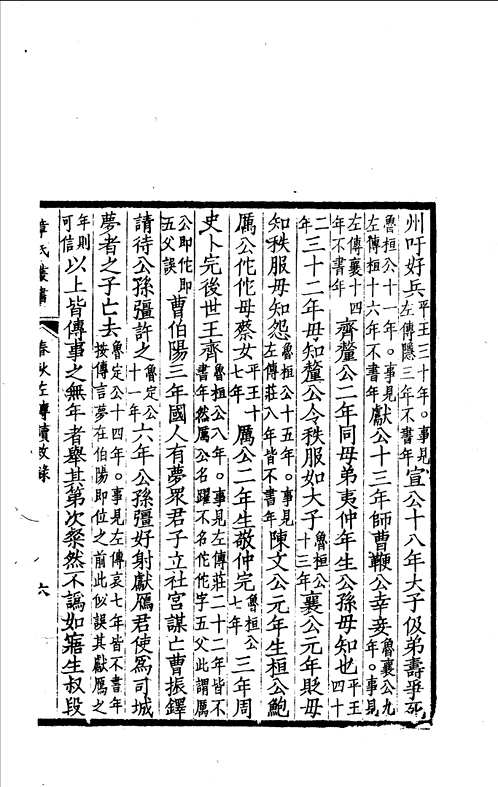 州吁好兵平王三十年。事見左傳隱三年不書年宣公十八年大子伋弟壽爭死
魯桓公十一年。事見左傳桓十六年不書年獻公十三年師曹鞭公幸妾魯襄公九年。事見左傳襄十四年不書年齊釐公二年同母弟夷仲年生公孫毋知也平王四十
二年三十二年毋知釐公令秩服如大子魯桓公十三年襄公元年貶毋
知秩服毋知怨魯桓公十五年。事見左傳莊八年皆不書年陳文公元年生桓公鮑
厲公佗佗母蔡女平王十七年厲公二年生敬仲完魯桓公七年三年周
史卜完後世王齊魯桓公八年。事見左傳莊二十二年皆不書年然厲公名躍不名佗佗字五父此謂厲
公即佗即五父誤曹伯陽三年國人有夢眾君子立社宮謀亡曹振鐸
請待公孫彊許之魯定公十一年六年公孫彊好射獻鴈君使為司城
夢者之子亡去魯定公十四年。事見左傳哀七年皆不書年按傳言夢在伯陽即位之前此似誤其獻鴈之
年則可信以上皆傳事之無年者舉其第次粲然不譌如寤生叔段
章氏叢書
春秋左傳讀敘錄
六